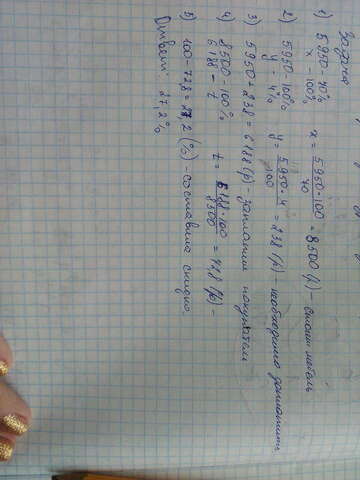 Задача
1) 5950 - 70%
x - 100%
x = 5950 · 100 / 70 = 8500 (р) - стоит мебель
2) 5950 - 100%
y - 4%
y = 5950 · 4 / 100 = 238 (р) - необходимо доплатить
3) 5950 + 238 = 6188 (р) - заплатит покупатель
4) 8500 - 100%
6188 - t
t = 6188 · 100 / 8500 = 72,8 (р) -
5) 100 - 72,8 = 27,2 (%) - составила скидка.
Ответ: 27,2%